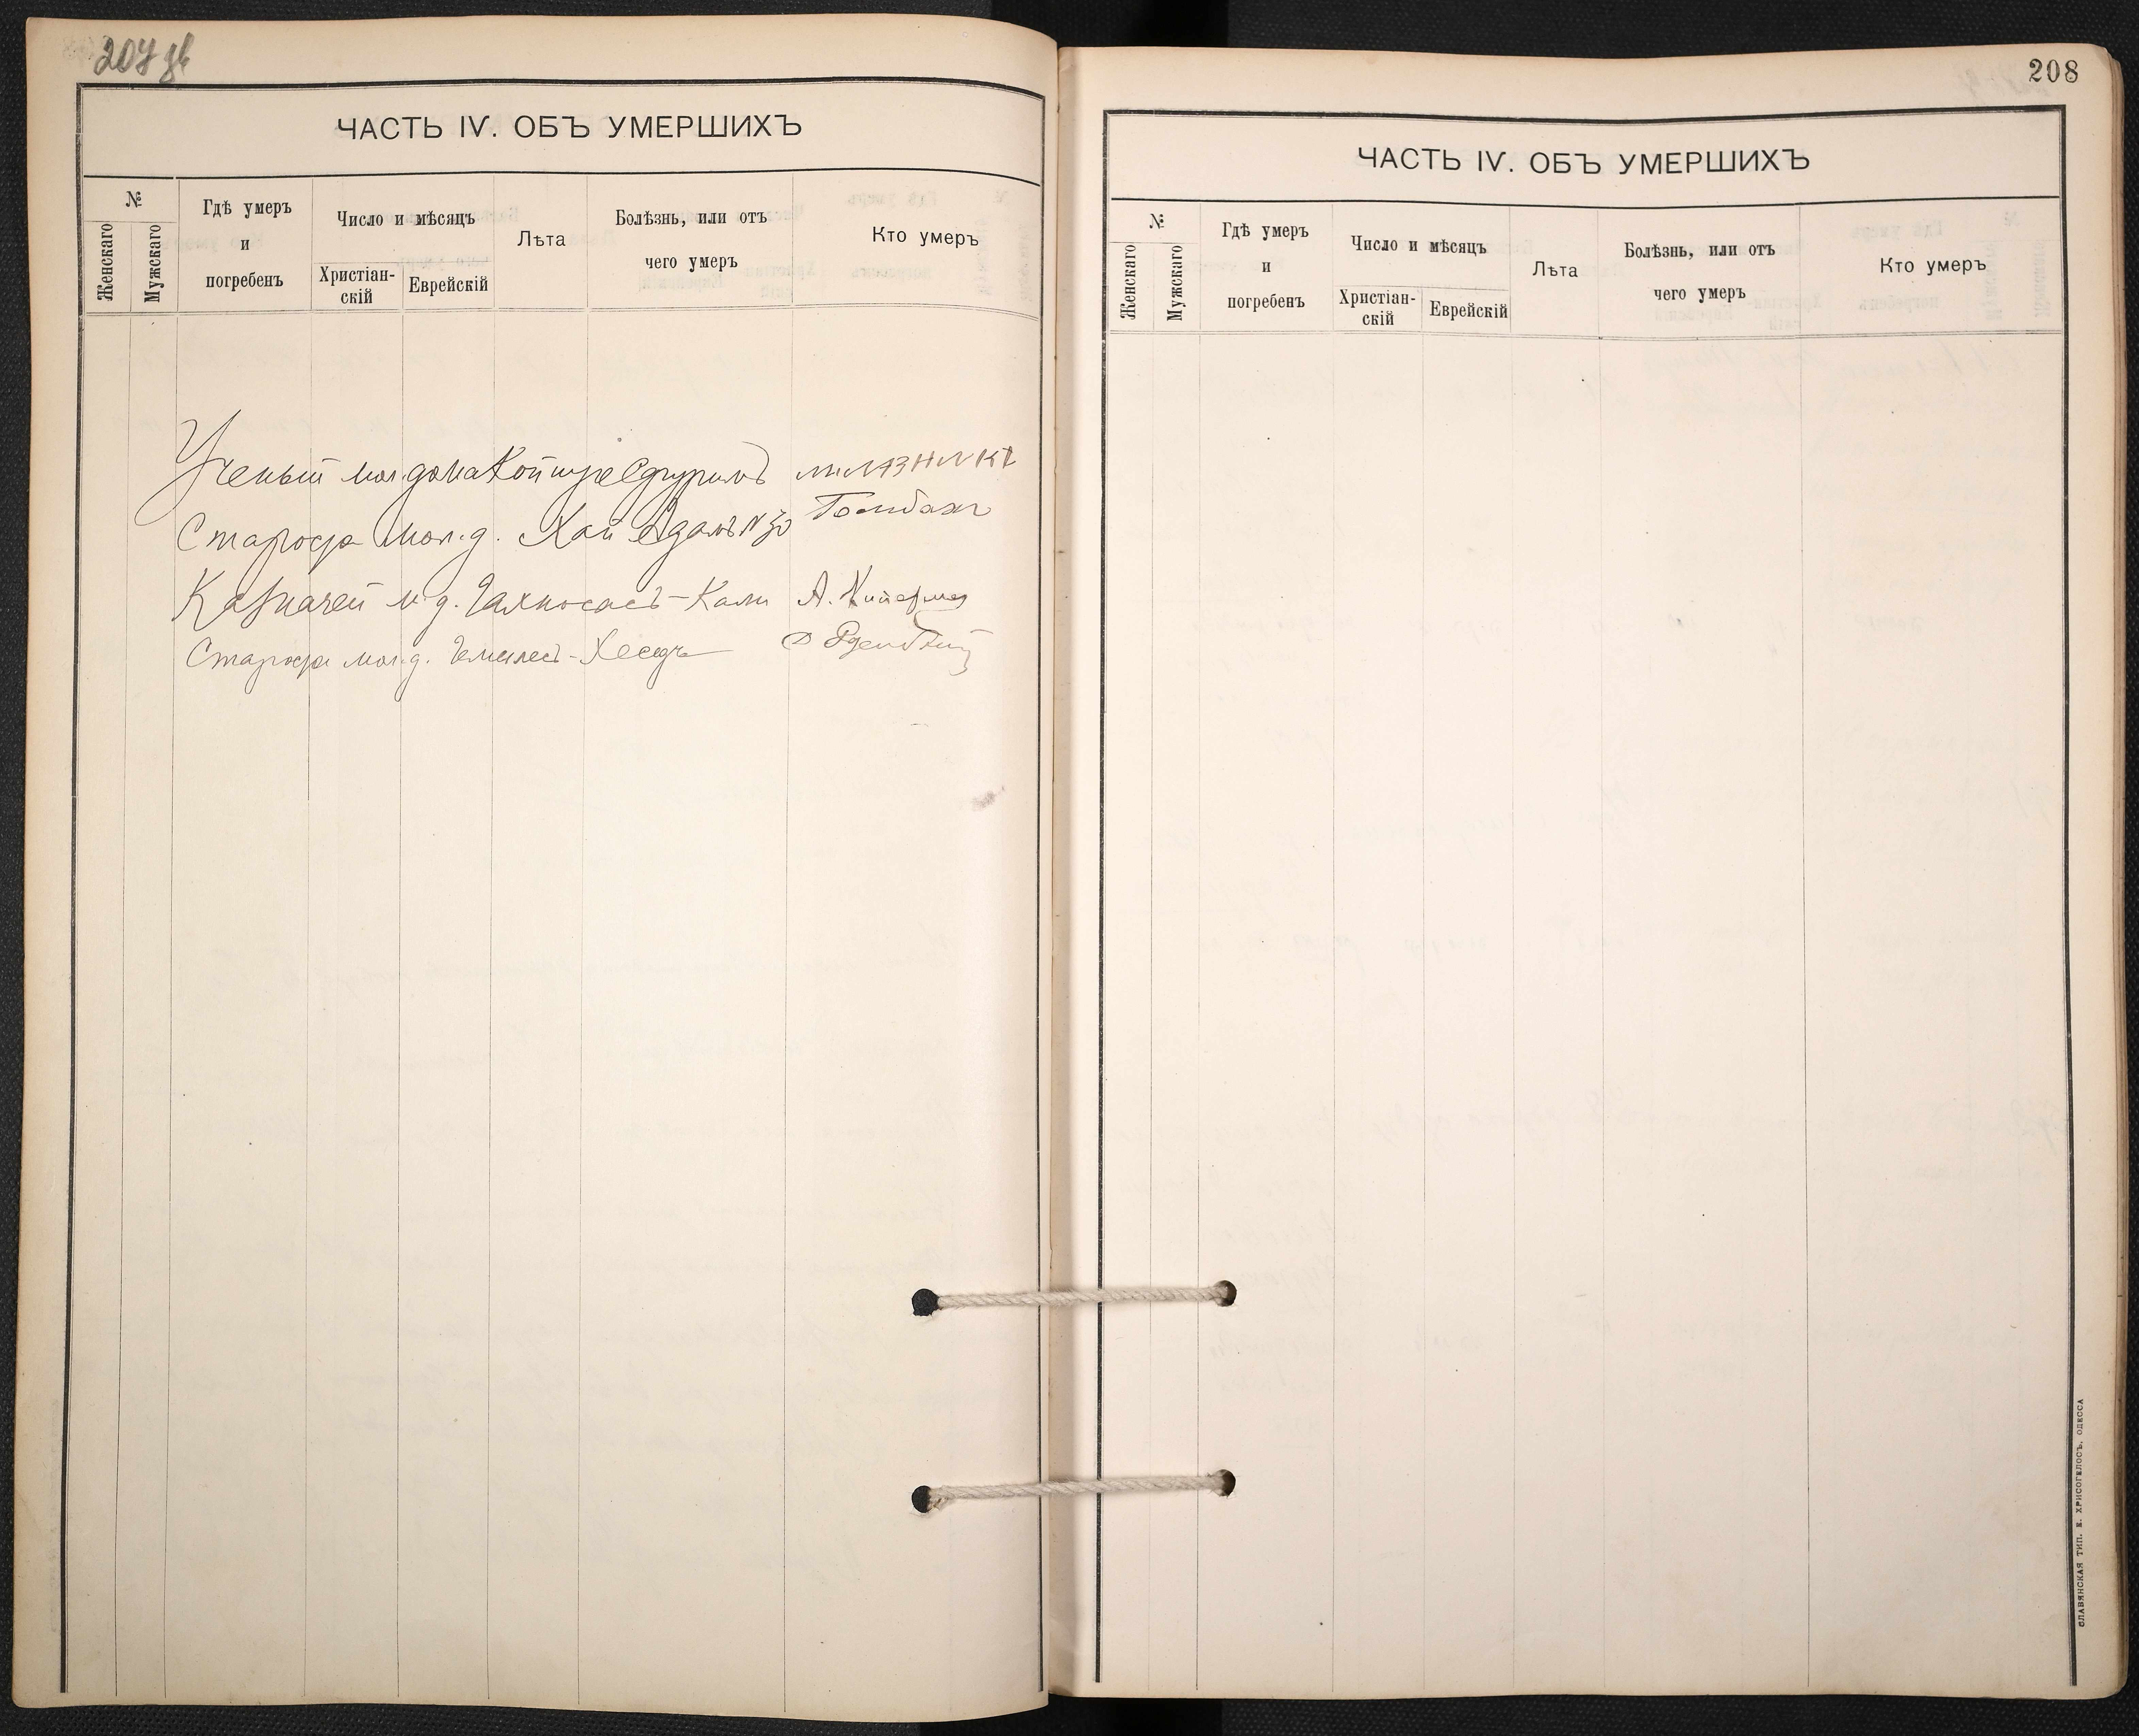 207 зв
ЧАСТЬ IV. ОБЪ УМЕРШИХЪ
№
Женскаго
Мужскаго
Гдѣ умеръ
и
погребенъ
Число и мѣсяцъ
Христіан-
скій
Еврейскій
Лѣта
Болѣзнь, или отъ
чего умеръ
Кто умеръ
Ученый мол. дома
Староста мол. д. Хай Одамъ
Казначей м. д. - Кали А.
Староста мол. д. Гемилес - Хеседъ
208
ЧАСТЬ IV. ОБЪ УМЕРШИХЪ
№
Женскаго
Мужскаго
Гдѣ умеръ
и
погребенъ
Число и мѣсяцъ
Христіан-
скій
Еврейскій
Лѣта
Болѣзнь, или отъ
чего умеръ
Кто умеръ
СЛАВЯНСКАЯ ТИП. Е. ХРИСОГЕЛОСЪ. ОДЕССА